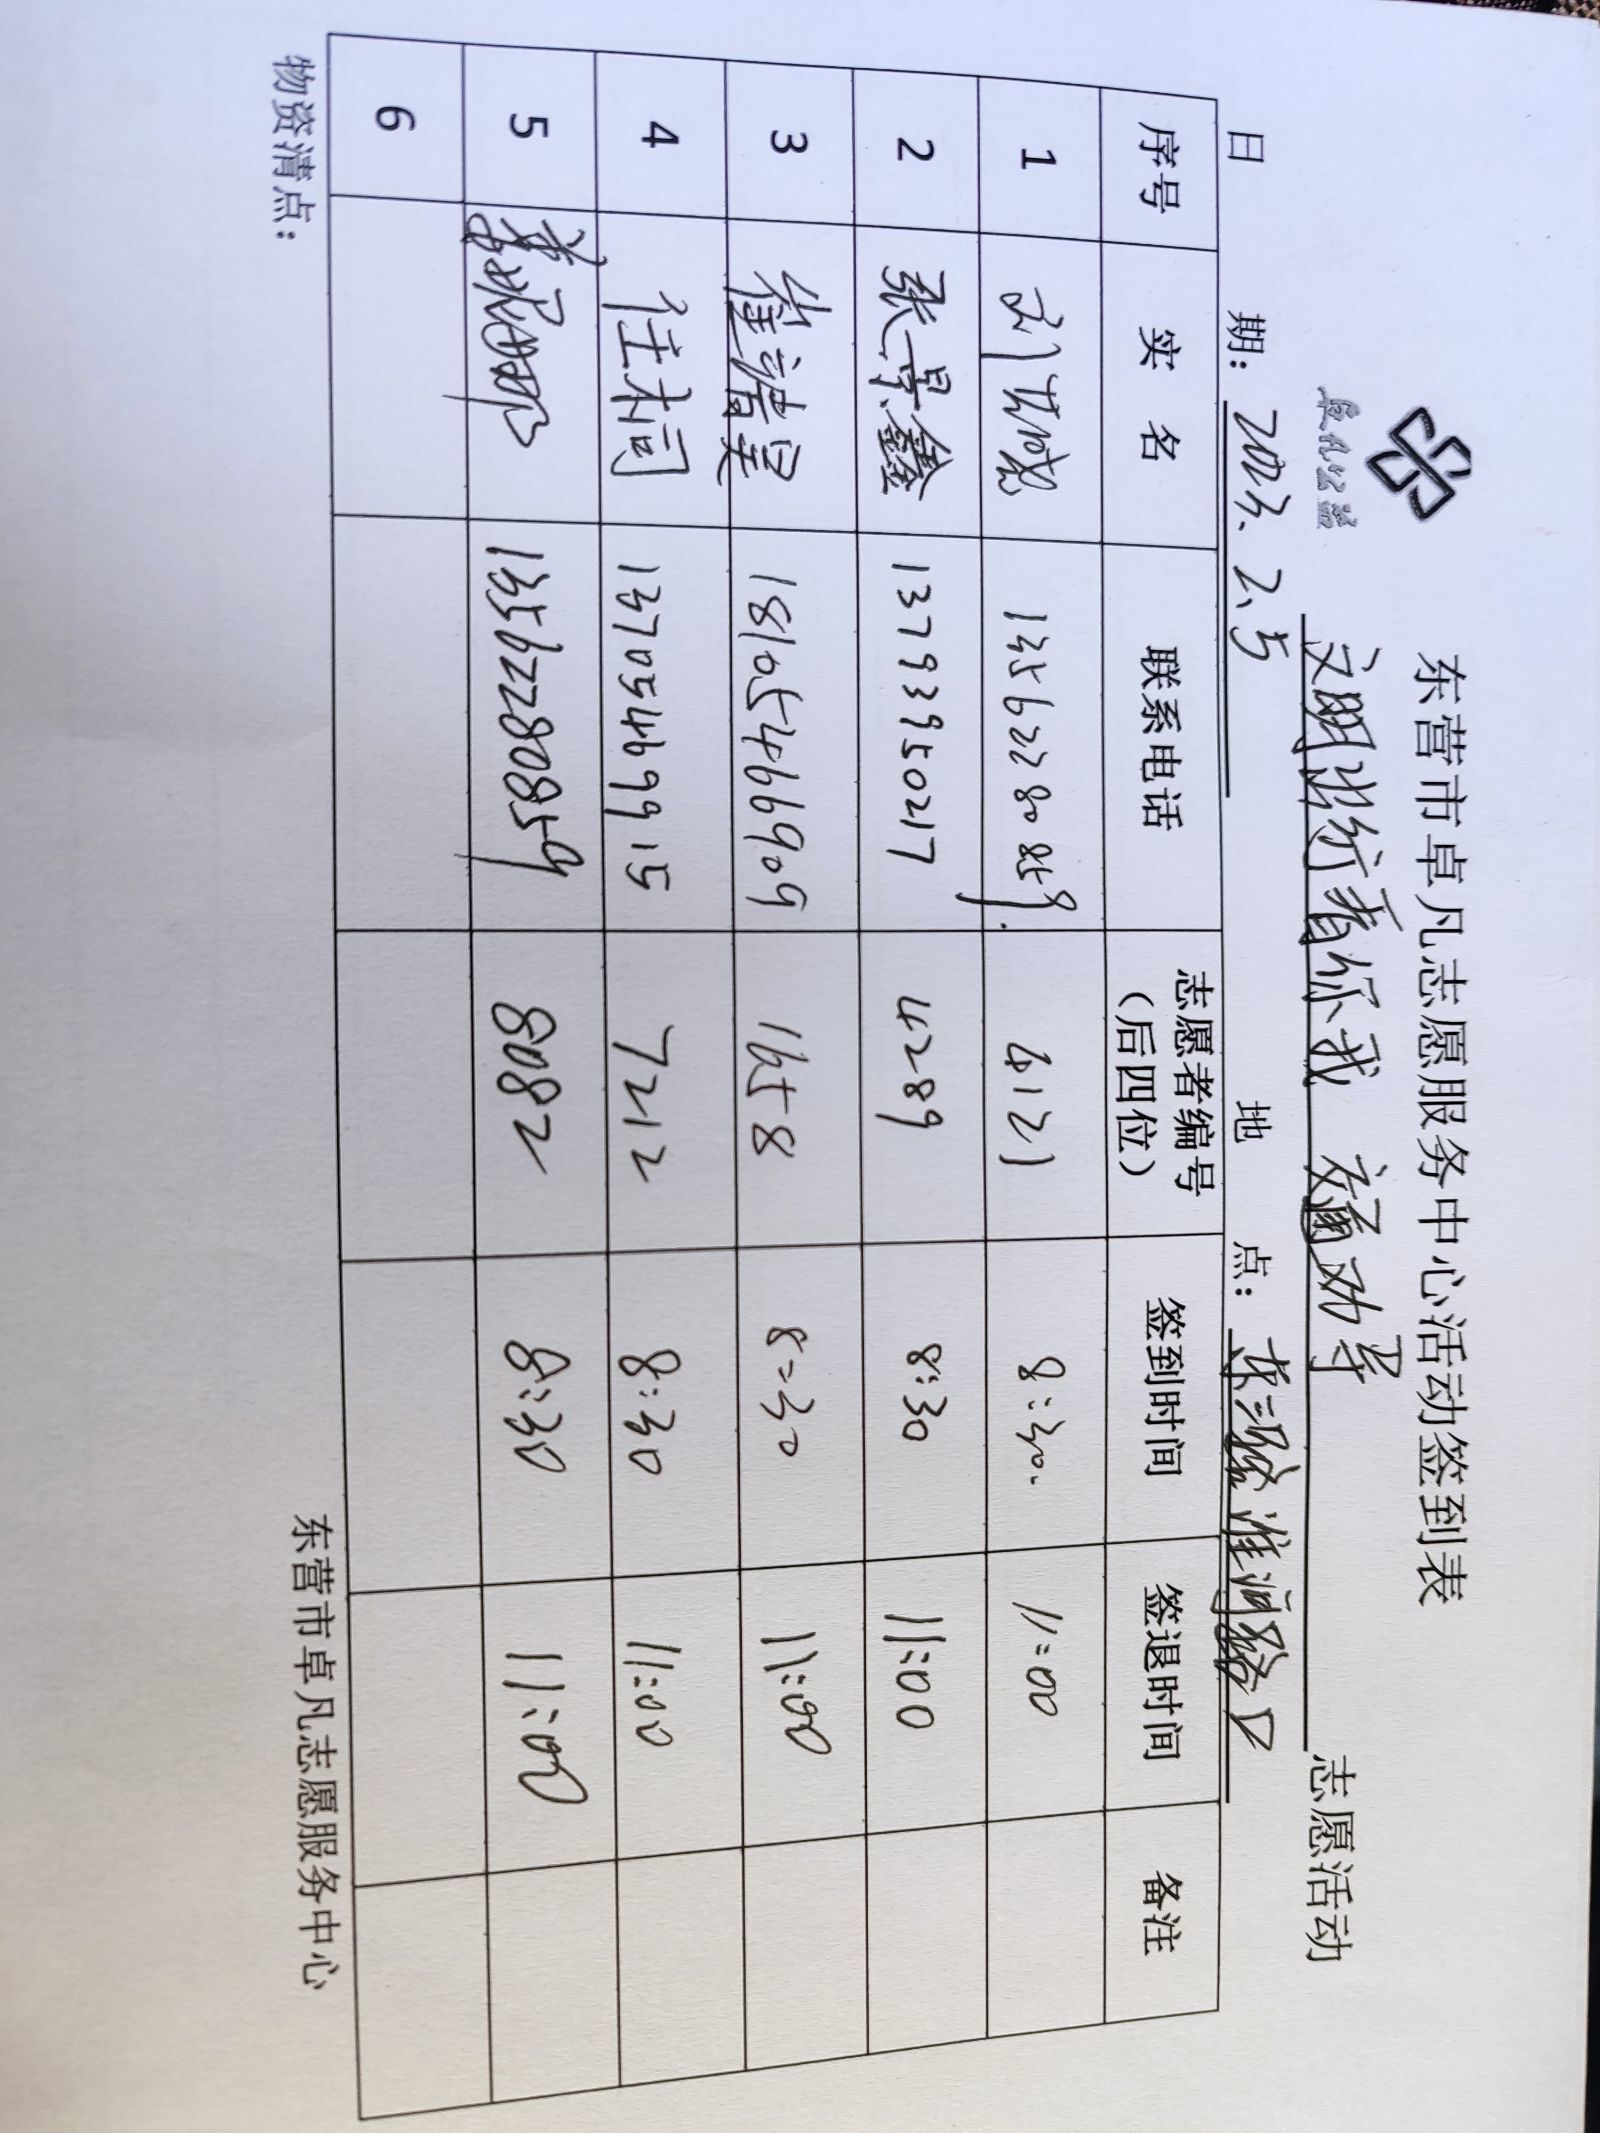 东营市卓凡志愿服务中心活动签到表
卓凡公益
文明出行看你我 交通劝导 志愿活动
日 期: 2023.2.5 地 点: 东三路淮河路口
序号 实 名 联系电话 志愿者编号(后四位) 签到时间 签退时间 备注
1 13562280859 4121 8:30 11:00
2 张景鑫 13793950217 4289 8:30 11:00
3 崔靖昊 18105466909 1658 8:30 11:00
4 13705469915 7212 8:30 11:00
5 13562280859 8082 8:30 11:00
6
物资清点:
东营市卓凡志愿服务中心